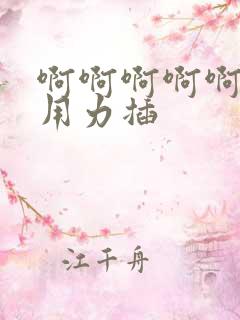 啊啊啊啊啊
用力插
江干舟